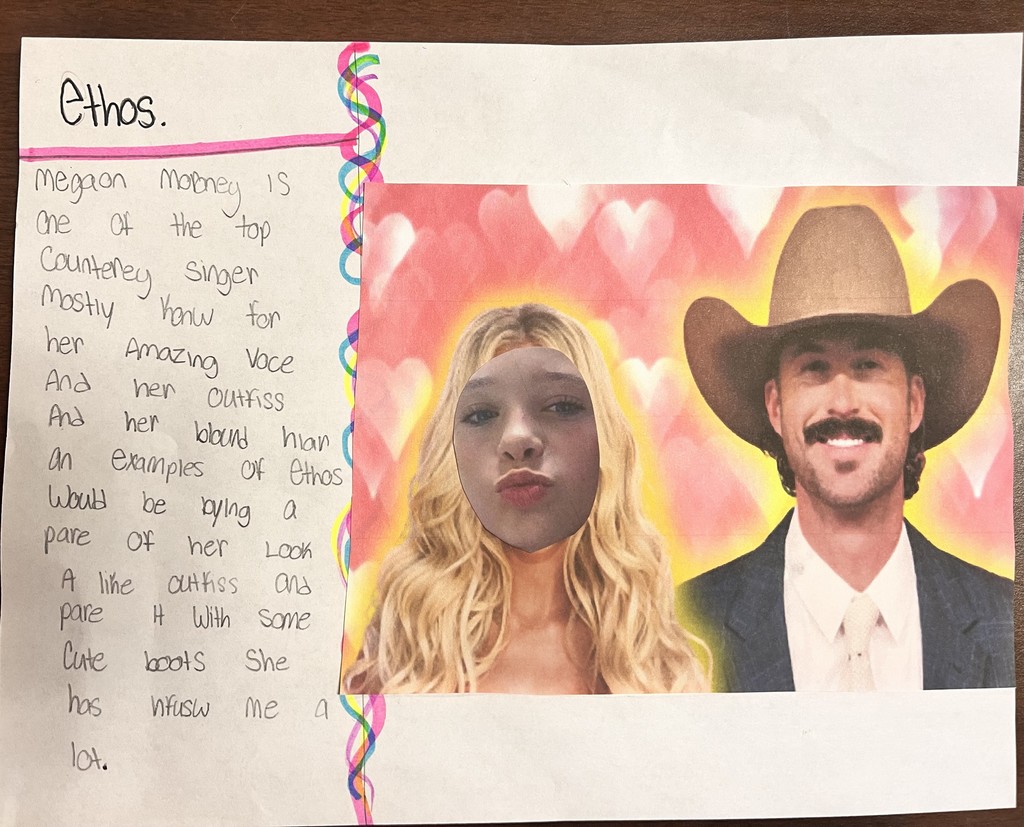 ethos.
Megaon Moroney IS
one of the top
Counterey singer
Mostly Konw for
her Amazing Voce
And her outfiss
And her blound hiar
an examples of ethos
Would be bying a
pare of her Look
A like outfiss and
pare it With some
Cute boots She
has infusw me a
lot.